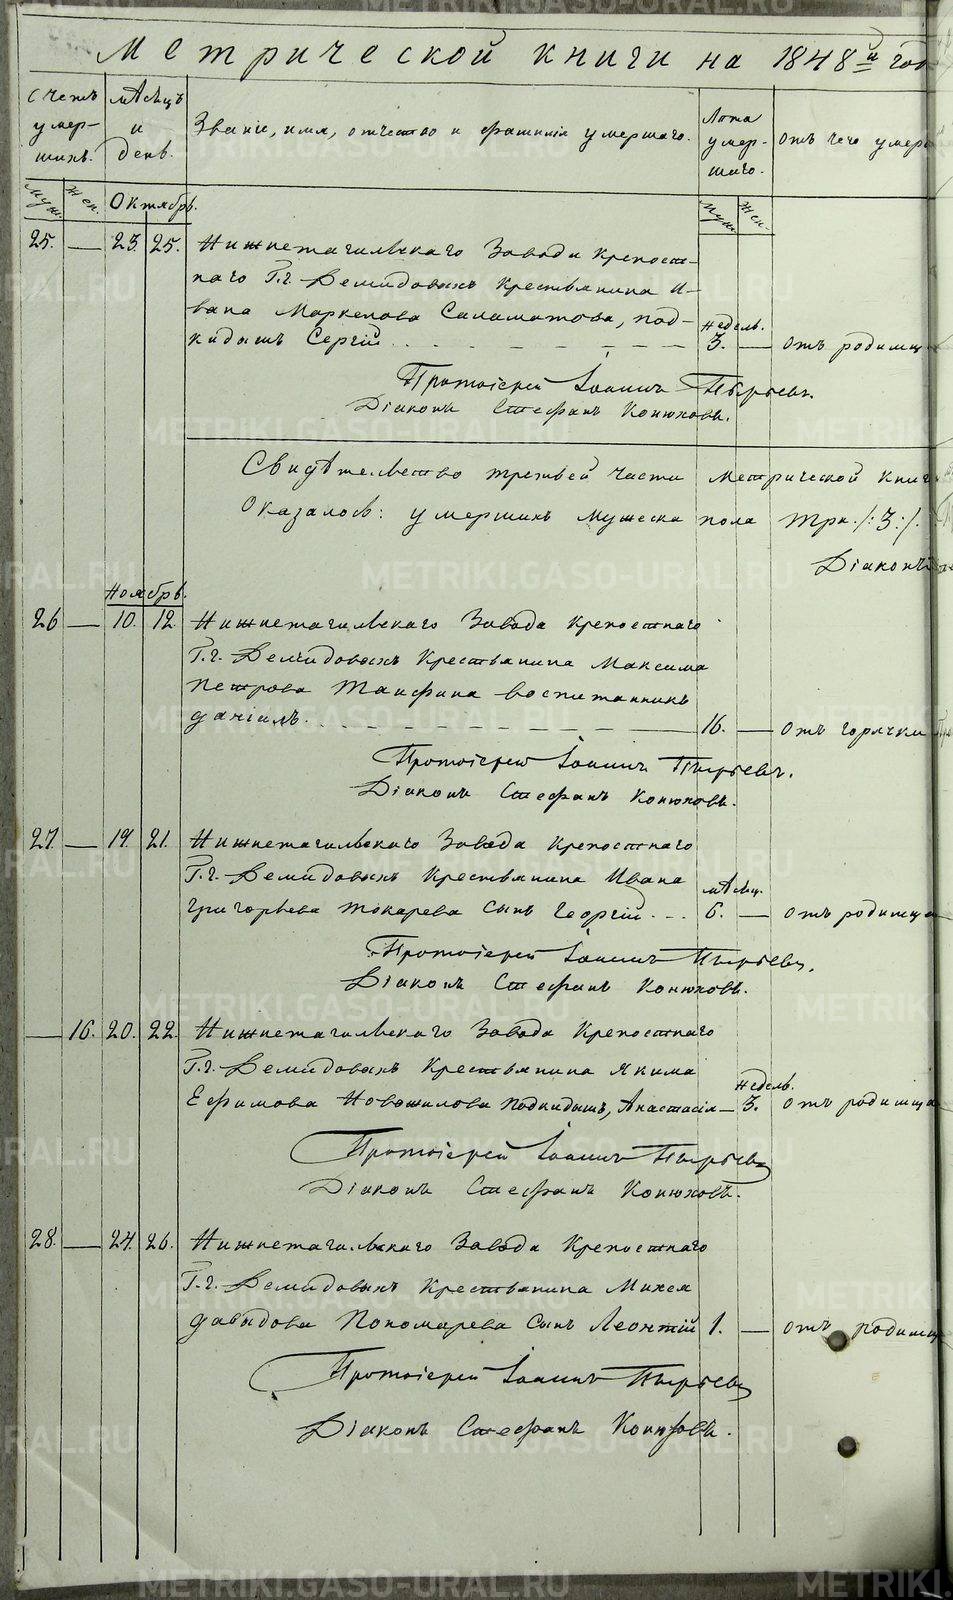 Метрической книги на 1848й год
Счетъ умер-шихъ.
мѣсяцъ и день.
Званіе, имя, отчество и фамилія умершаго.
Лѣта умер-шаго.
отъ чего умеръ
муж. Жен. Октябрь. муж. Жен.
25. — 23. 25. Нижнетагильскаго Завода Крепост-
наго Г.г. Демидовыхъ Крестьянина И-
вана Маркелова Саламатова, под-
кидышъ Сергій недель. 3. — отъ родимца
Протоіерей Іоаннъ Пырьевъ.
Діаконъ Стефанъ Конюховъ.
Свидѣтельство третьей части Метрической книг
Оказалось: умершихъ мужеска пола три /:3:/.
Діаконъ
Ноябрь.
26 — 10. 12. Нижнетагильскаго Завода Крепостнаго
Г.г. Демидовыхъ Крестьянина Максима
Петрова Танфина воспитанникъ
Даніилъ. 16. — отъ горячки
Протоіерей Іоаннъ Пырьевъ.
Діаконъ Стефанъ Конюховъ.
27. — 19. 21. Нижнетагильскаго Завода Крепостнаго
Г.г. Демидовыхъ Крестьянина Ивана
Григорьева Токарева сынъ Георгій. мѣсяц. 6. — отъ родимца
Протоіерей Іоаннъ Пырьевъ.
Діаконъ Стефанъ Конюховъ.
— 16. 20. 22. Нижнетагильскаго Завода Крепостнаго
Г.г. Демидовыхъ Крестьянина Якима
Ефимова Новожилова подкидышъ, Анастасія — недель. 3. отъ родимца
Протоіерей Іоаннъ Пырьевъ
Діаконъ Стефанъ Конюховъ.
28. — 24. 26. Нижнетагильскаго Завода Крепостнаго
Г.г. Демидовыхъ Крестьянина Михея
Давыдова Пономарева сынъ Леонтій 1. — отъ родимца
Протоіерей Іоаннъ Пырьевъ
Діаконъ Стефанъ Конюховъ.
METRIKI.GASO-URAL.RU